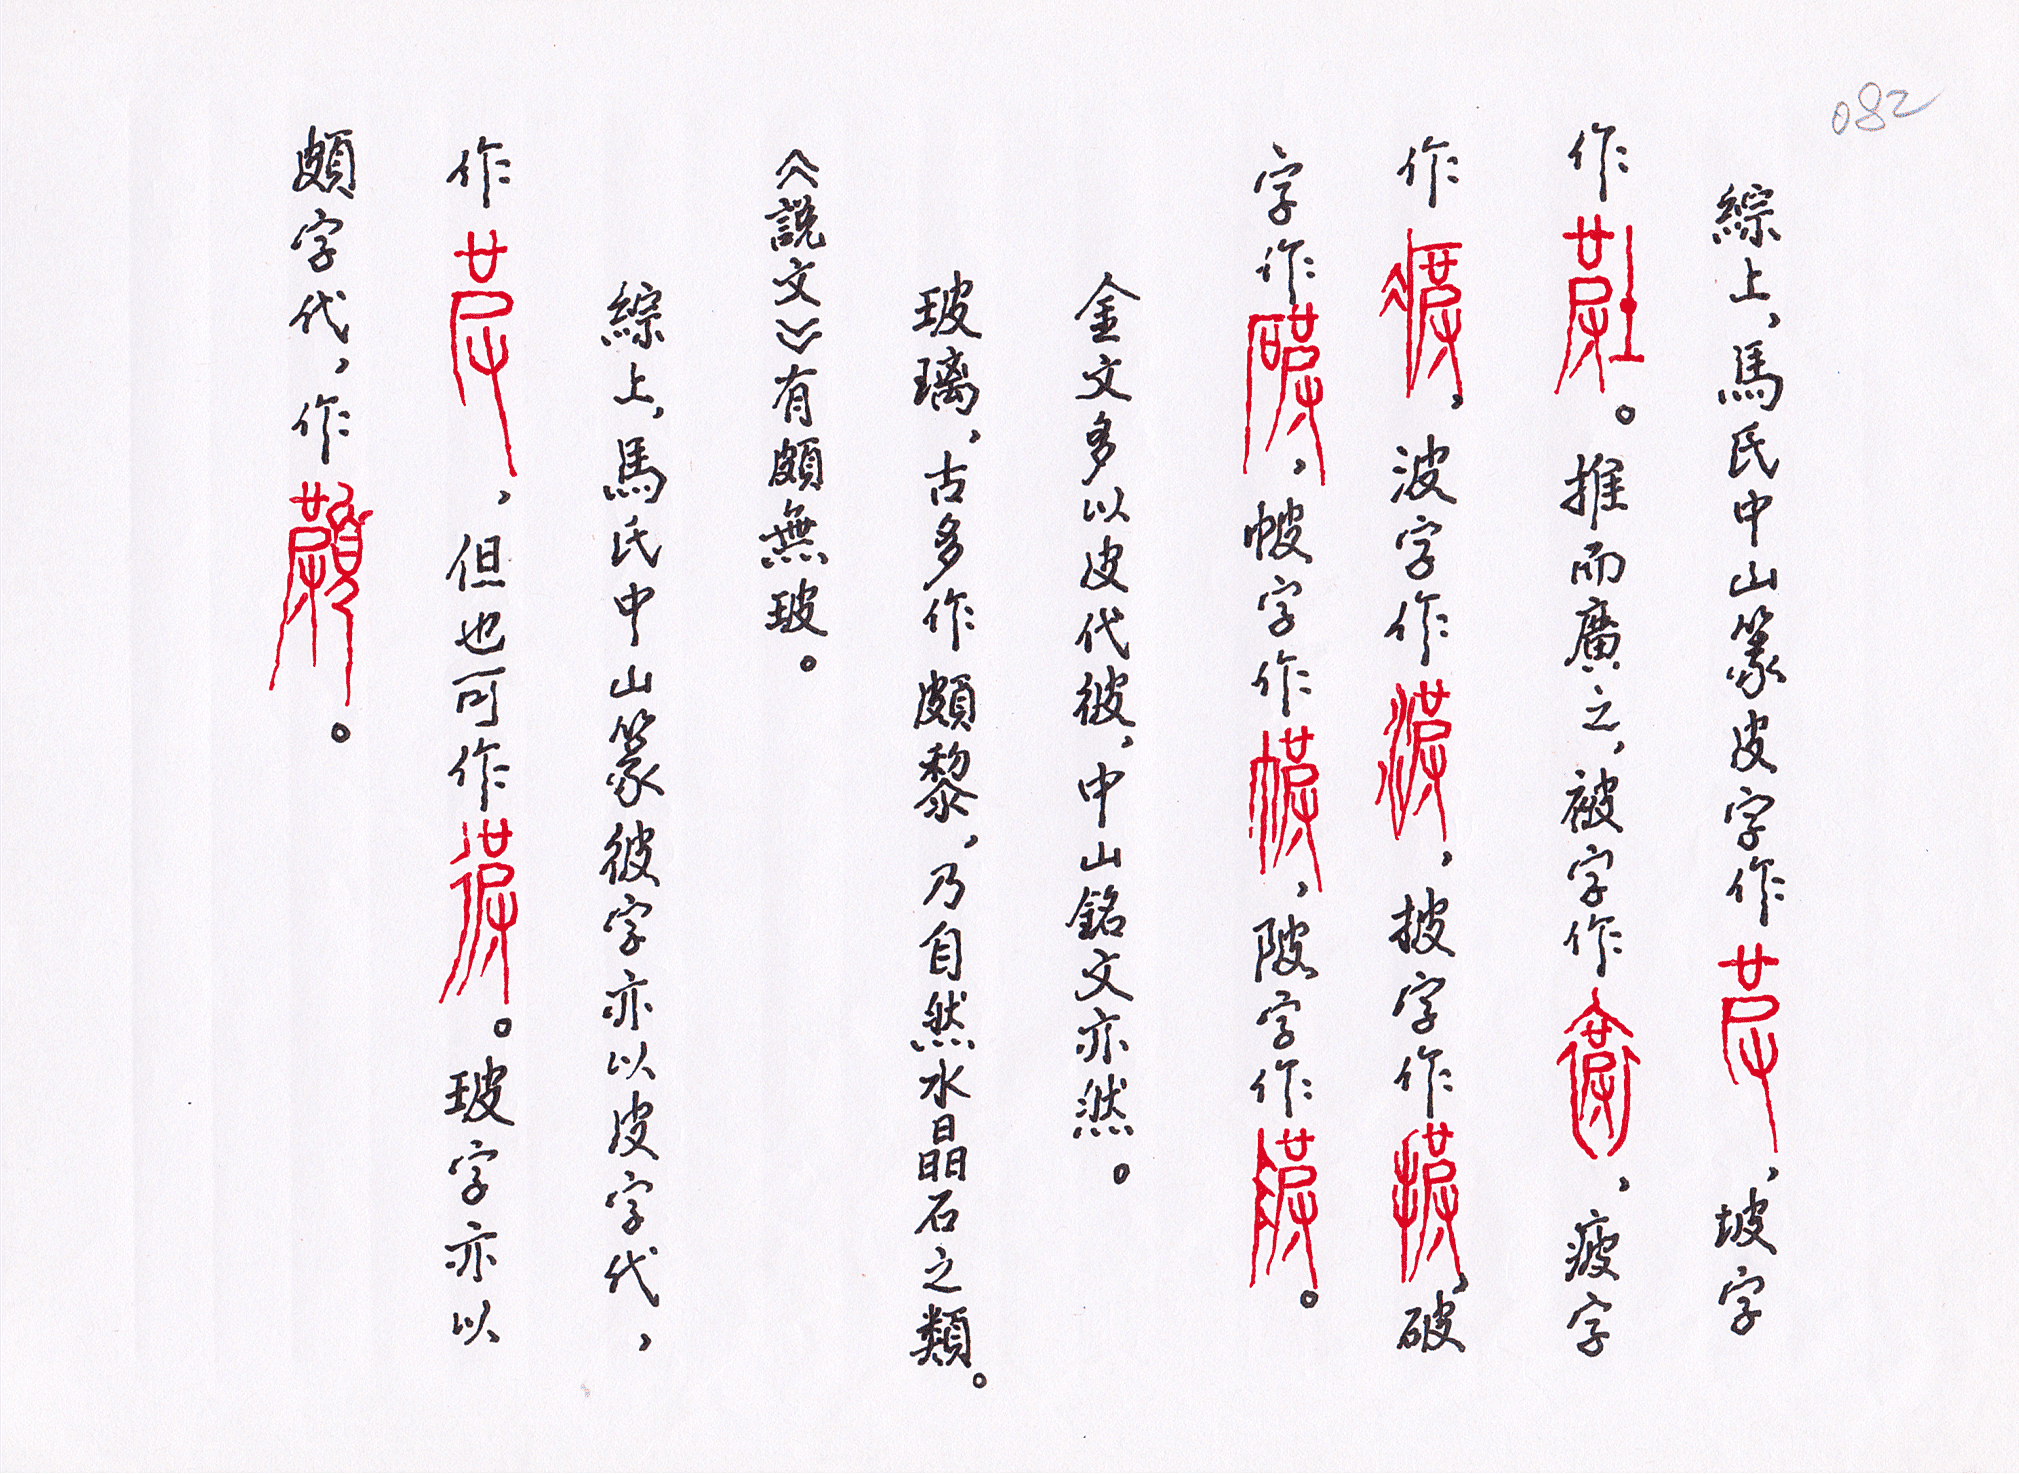 082
綜上，馬氏中山篆皮字作，坡字
作。推而廣之，被字作，疲字
作，波字作，披字作，破
字作，帔字作，陂字作。
金文多以皮代彼，中山銘文亦然。
玻璃，古多作頗黎，乃自然水晶石之類。
《說文》有頗無玻。
綜上，馬氏中山篆彼字亦以皮字代，
作，但也可作。玻字亦以
頗字代，作。